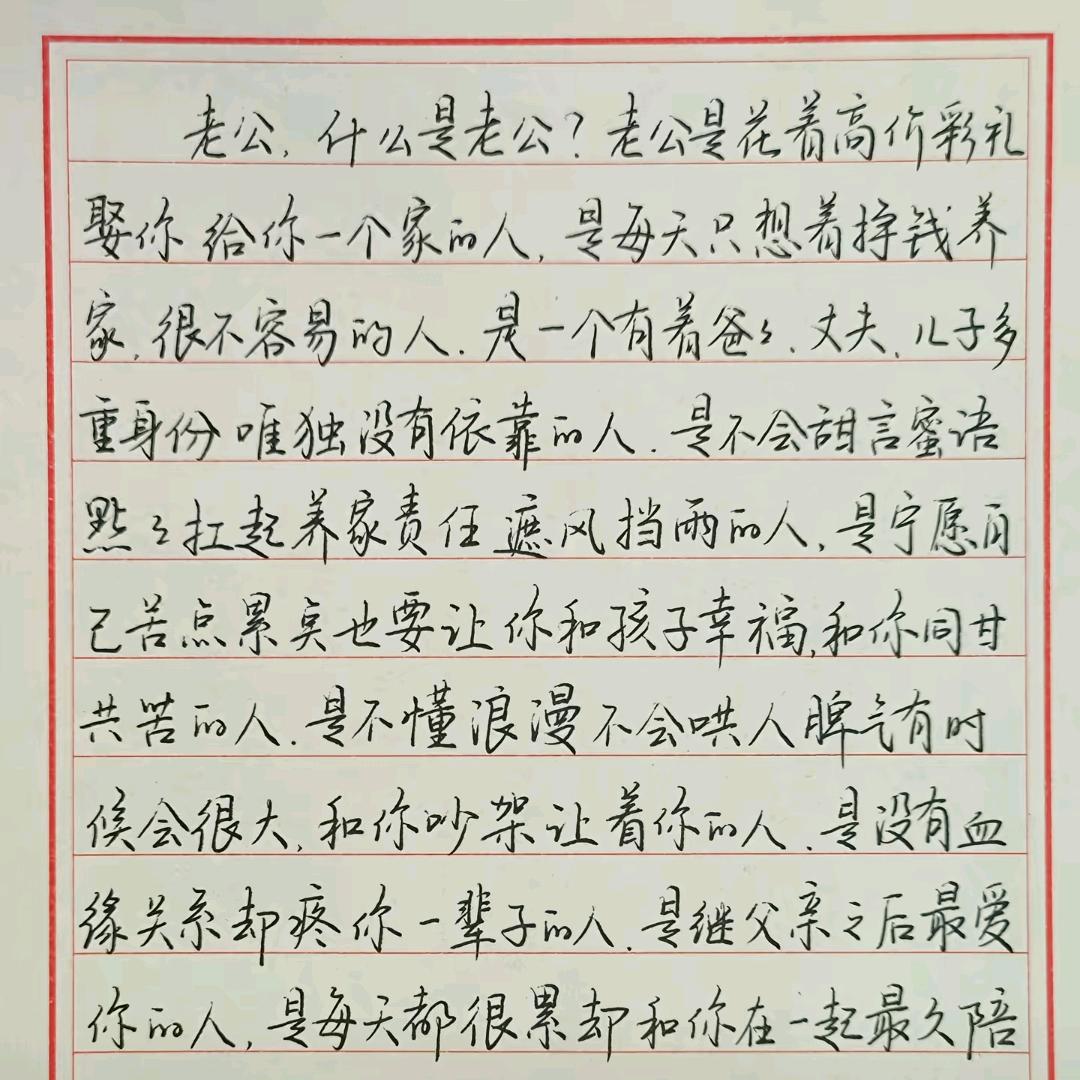 老公,什么是老公?老公是花着高价彩礼
娶你给你一个家的人,是每天只想着挣钱养
家,很不容易的人.是一个有着爸々、丈夫、儿子多
重身份唯独没有依靠的人.是不会甜言蜜语
默々扛起养家责任遮风挡雨的人,是宁愿自
己苦点累点也要让你和孩子幸福,和你同甘
共苦的人.是不懂浪漫不会哄人脾气有时
候会很大,和你吵架让着你的人.是没有血
缘关系却疼你一辈子的人.是继父亲之后最爱
你的人,是每天都很累却和你在一起最久陪